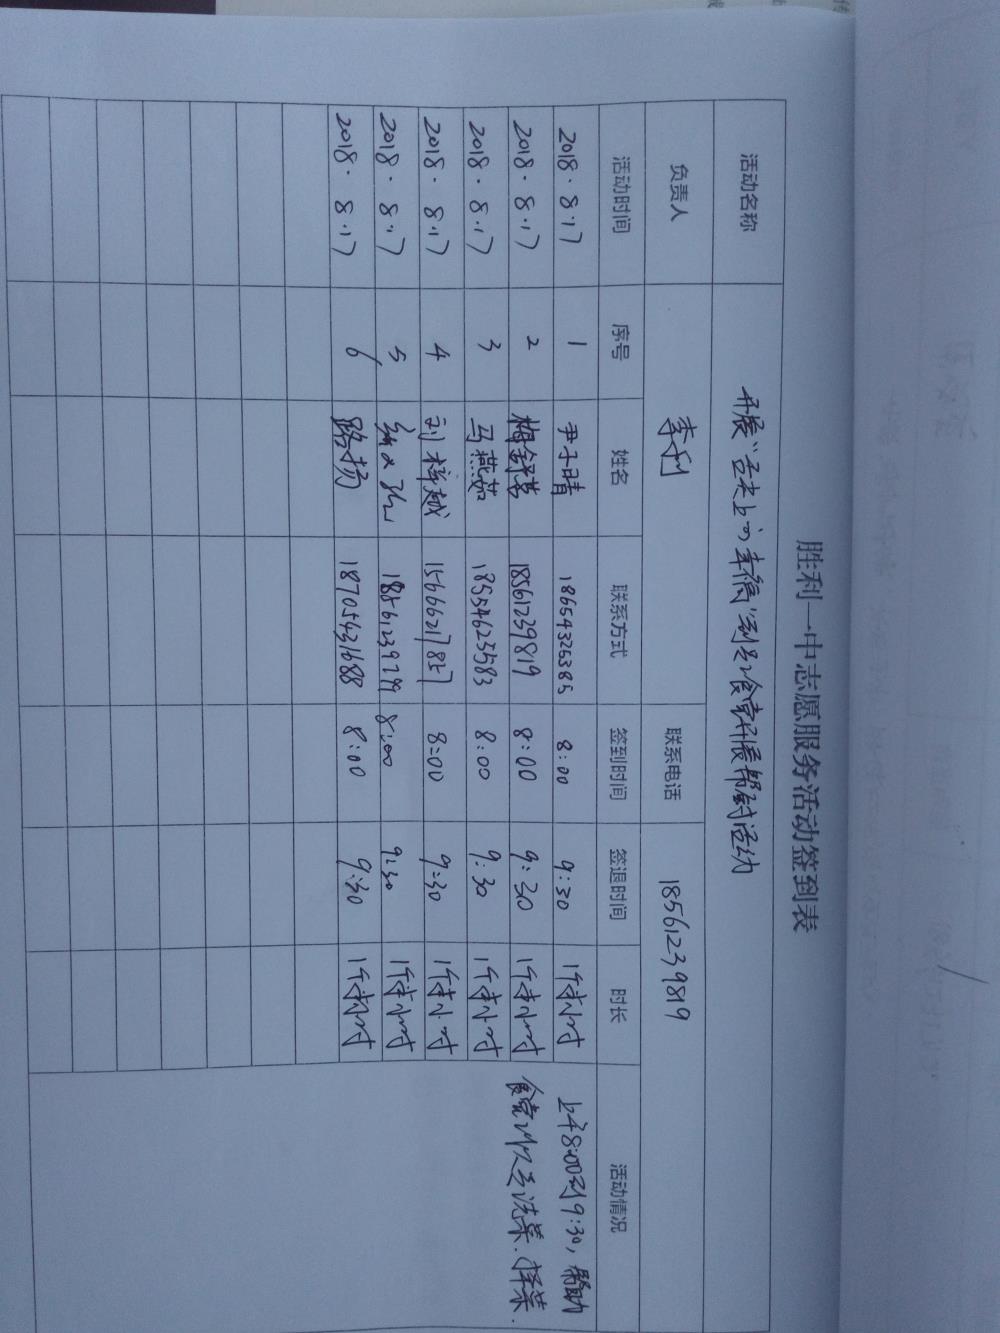 胜利一中志愿服务活动签到表
活动名称 开展"舌尖上的幸福"到食堂开展帮厨活动
负责人 李利 联系电话 18561239819
活动时间 序号 姓名 联系方式 签到时间 签退时间 时长 活动情况
2018.8.17 1 尹子晴 18654326385 8:00 9:30 1个半小时 上午8:00到9:30,帮助
2018.8.17 2 梅舒 18561239819 8:00 9:30 1个半小时 食堂洗菜.择菜.
2018.8.17 3 马燕茹 18554625583 8:00 9:30 1个半小时
2018.8.17 4 刘梓越 15666217857 8:00 9:30 1个半小时
2018.8.17 5 18561239299 8:00 9:30 1个半小时
2018.8.17 6 路扬 18705431688 8:00 9:30 1个半小时